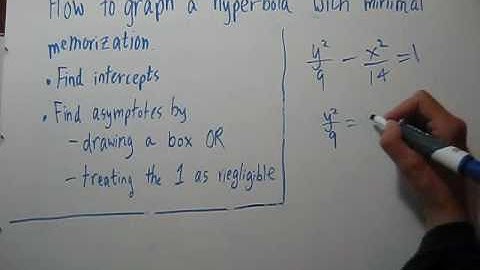 How to graph a hyperbola with minimal
memorization.
• Find intercepts
• Find asymptotes by
- drawing a box OR
- treating the 1 as negligible
y²/9 - x²/14 = 1
y²/9 =